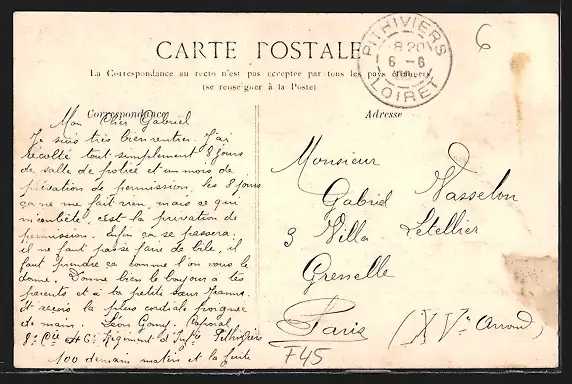 CARTE POSTALE
La Correspondance au recto n'est pas acceptée par tous les pays étrangers
(se renseigner à la Poste)
PITHIVIERS
8 20
6 - 6
LOIRET
6
Correspondance
Mon Cher Gabriel
Je suis très bien rentrer. J'ai
récolté tout simplement 8 jours
de salle de police et un mois de
privation de permission, les 8 jours
ça ne me fait rien, mais ce qui
m'embête, c'est la privation de
permission. Enfin ça se passera,
il ne faut pas se faire de bile, il
faut prendre ça comme l'on vous le
donne. Donne bien le bonjour à tes
parents et à ta petite sœur Jeanne.
Et reçois la plus cordiale poignée
de mains. Léon Caporal
8e Cie Régiment d'Inf^ie Pithiviers
100 demain matin et la fuite
Adresse
Monsieur
Gabriel Vasselon
3 Villa Letellier
Grenelle
Paris (XVe Arrond)
F45